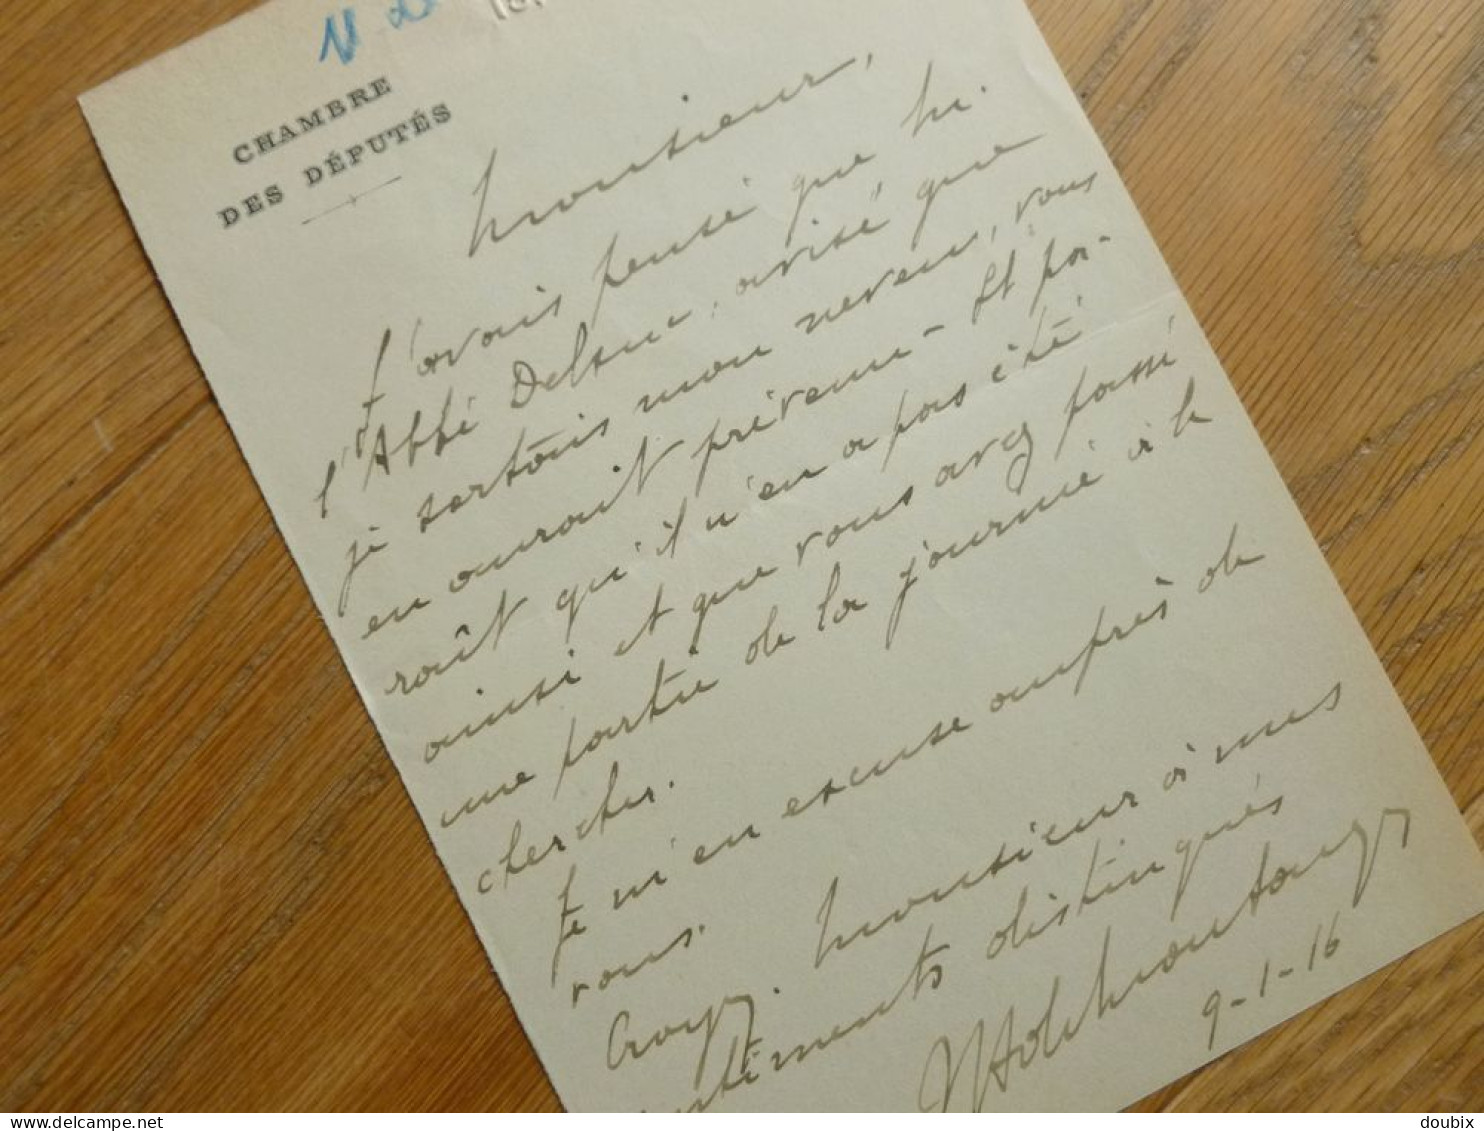 CHAMBRE
DES DÉPUTÉS
Monsieur,
J'avais pensé que M.
l'Abbé Delsuc, avisé que
je sortais mon neveu, vous
en aurait prévenu - Il pa-
raît qu'il n'en a pas été
ainsi et que vous avez passé
une partie de la journée à le
chercher.
Je m'en excuse auprès de
vous.
Croyez, Monsieur à mes
sentiments distingués
9-1-16
delcampe.net
doubix